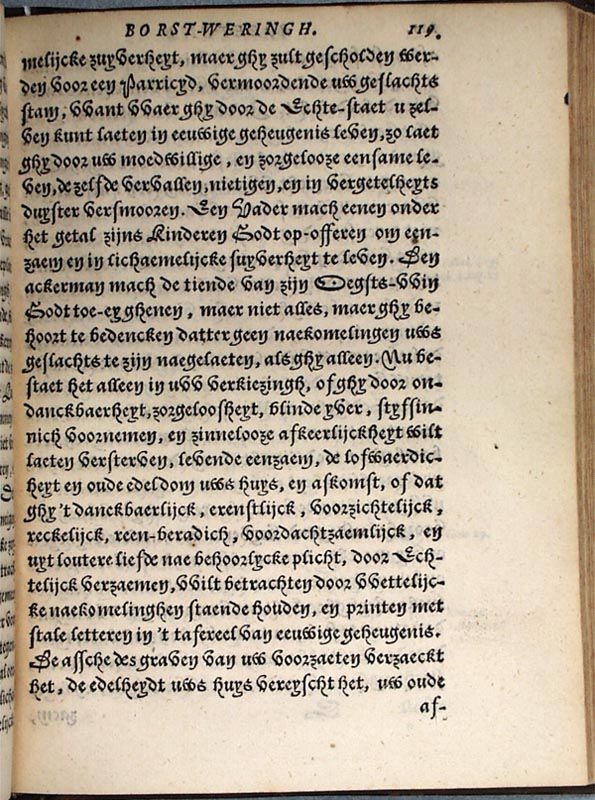 BORST-WERINGH. 119.
melijcke zuyverheyt, maer ghy zult gescholden wer-
den voor een Parricyd, vermoordende uw geslachts
stam, VVant VVaer ghy door de Echte-staet u zel-
ven kunt laeten in eeuwige geheugenis leven, zo laet
ghy door uw moedwillige, en zorgelooze eensame le-
ven, de zelfde vervallen, nietigen, en in vergetelheyts
duyster versmooren. Een Vader mach eenen onder
het getal zijns Kinderen Godt op-offeren om een-
zaem en in lichaemelijcke suyverheyt te leven. Den
ackerman mach de tiende van zijn Oegsts-VVin
Godt toe-eyghenen, maer niet alles, maer ghy be-
hoort te bedencken datter geen naekomelingen uws
geslachts te zijn naegelaeten, als ghy alleen. Nu be-
staet het alleen in uVV verkiezingh, of ghy door on-
danckbaerheyt, zorgeloosheyt, blinde yver, styfsin-
nich voornemen, en zinnelooze afkeerlijckheyt wilt
laeten versterven, levende eenzaem, de lofwaerdic-
heyt en oude edeldom uws huys, en afkomst, of dat
ghy 't danckbaerlijck, erenstlijck, voorzichtelijck,
reckelijck, reen-beradich, voordachtzaemlijck, en
uyt loutere liefde nae behoorlycke plicht, door Ech-
telijck verzaemen, VVilt betrachten door VVettelijc-
ke naekomelinghen staende houden, en printen met
stale letteren in 't tafereel van eeuwige geheugenis.
De assche des graven van uw voorzaeten verzaeckt
het, de edelheydt uws huys vereyscht het, uw oude
af-